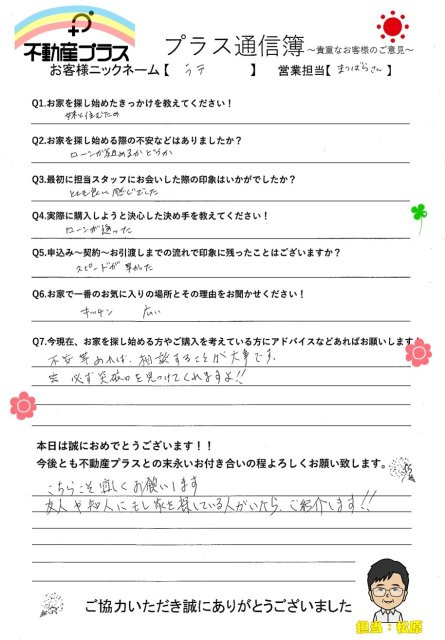 不動産プラス
プラス通信簿 ～貴重なお客様のご意見～
お客様ニックネーム【 ラテ 】 営業担当【 まつばらさん 】
Q1.お家を探し始めたきっかけを教えてください！
姉と住むため
Q2.お家を探し始める際の不安などはありましたか？
ローンが組めるかどうか
Q3.最初に担当スタッフにお会いした際の印象はいかがでしたか？
とても良い感じでした
Q4.実際に購入しようと決心した決め手を教えてください！
ローンが通った
Q5.申込み～契約～お引渡しまでの流れで印象に残ったことはございますか？
スピードが早かった
Q6.お家で一番のお気に入りの場所とその理由をお聞かせください！
キッチン 広い
Q7.今現在、お家を探し始める方やご購入を考えている方にアドバイスなどあればお願いします！
不安等あれば、相談することが大事です。
必ず突破口を見つけてくれますよ!!
本日は誠におめでとうございます！！
今後とも不動産プラスとの末永いお付き合いの程よろしくお願い致します。
こちらこそ宜しくお願いします
友人や知人にもし家を探している人がいたら、ご紹介します!!
ご協力いただき誠にありがとうございました
担当：松原